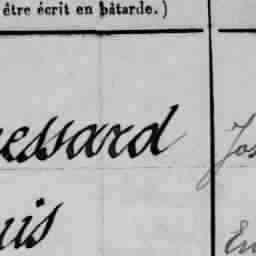 être écrit en bâtarde.)
essard
Jos
uis
En